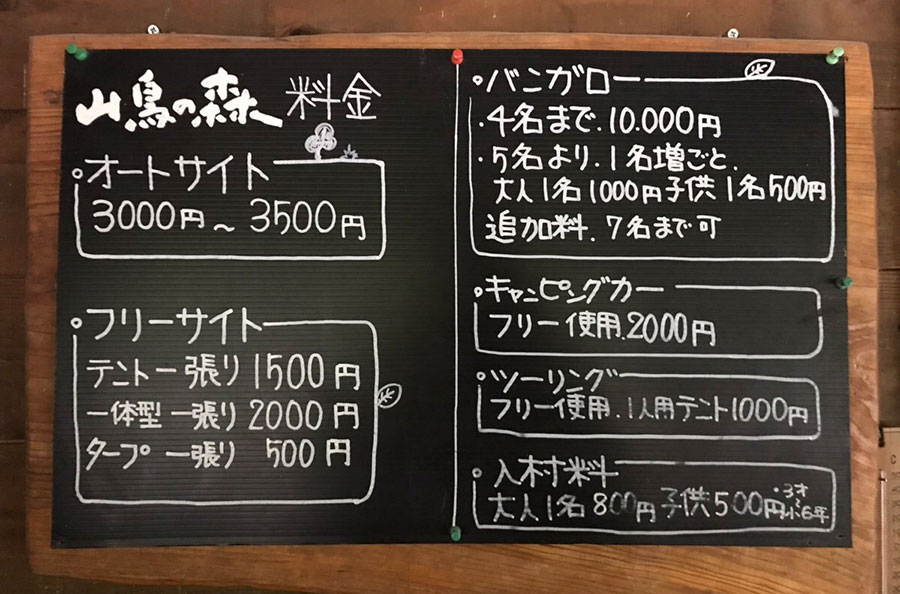 山鳥の森 料金
オートサイト
3000円～3500円
フリーサイト
テント一張り 1500円
一体型 一張り 2000円
タープ 一張り 500円
バンガロー
・4名まで.10.000円
・5名より.1名増ごと.
大人1名1000円子供1名500円
追加料.7名まで可
キャンピングカー
フリー使用.2000円
ツーリング
フリー使用.1人用テント1000円
入村料
大人1名800円子供500円・3才～小6年